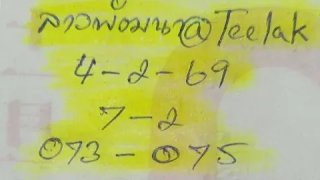 ลาวพัฒนา@Teelak
4-2-69
7-2
073-075